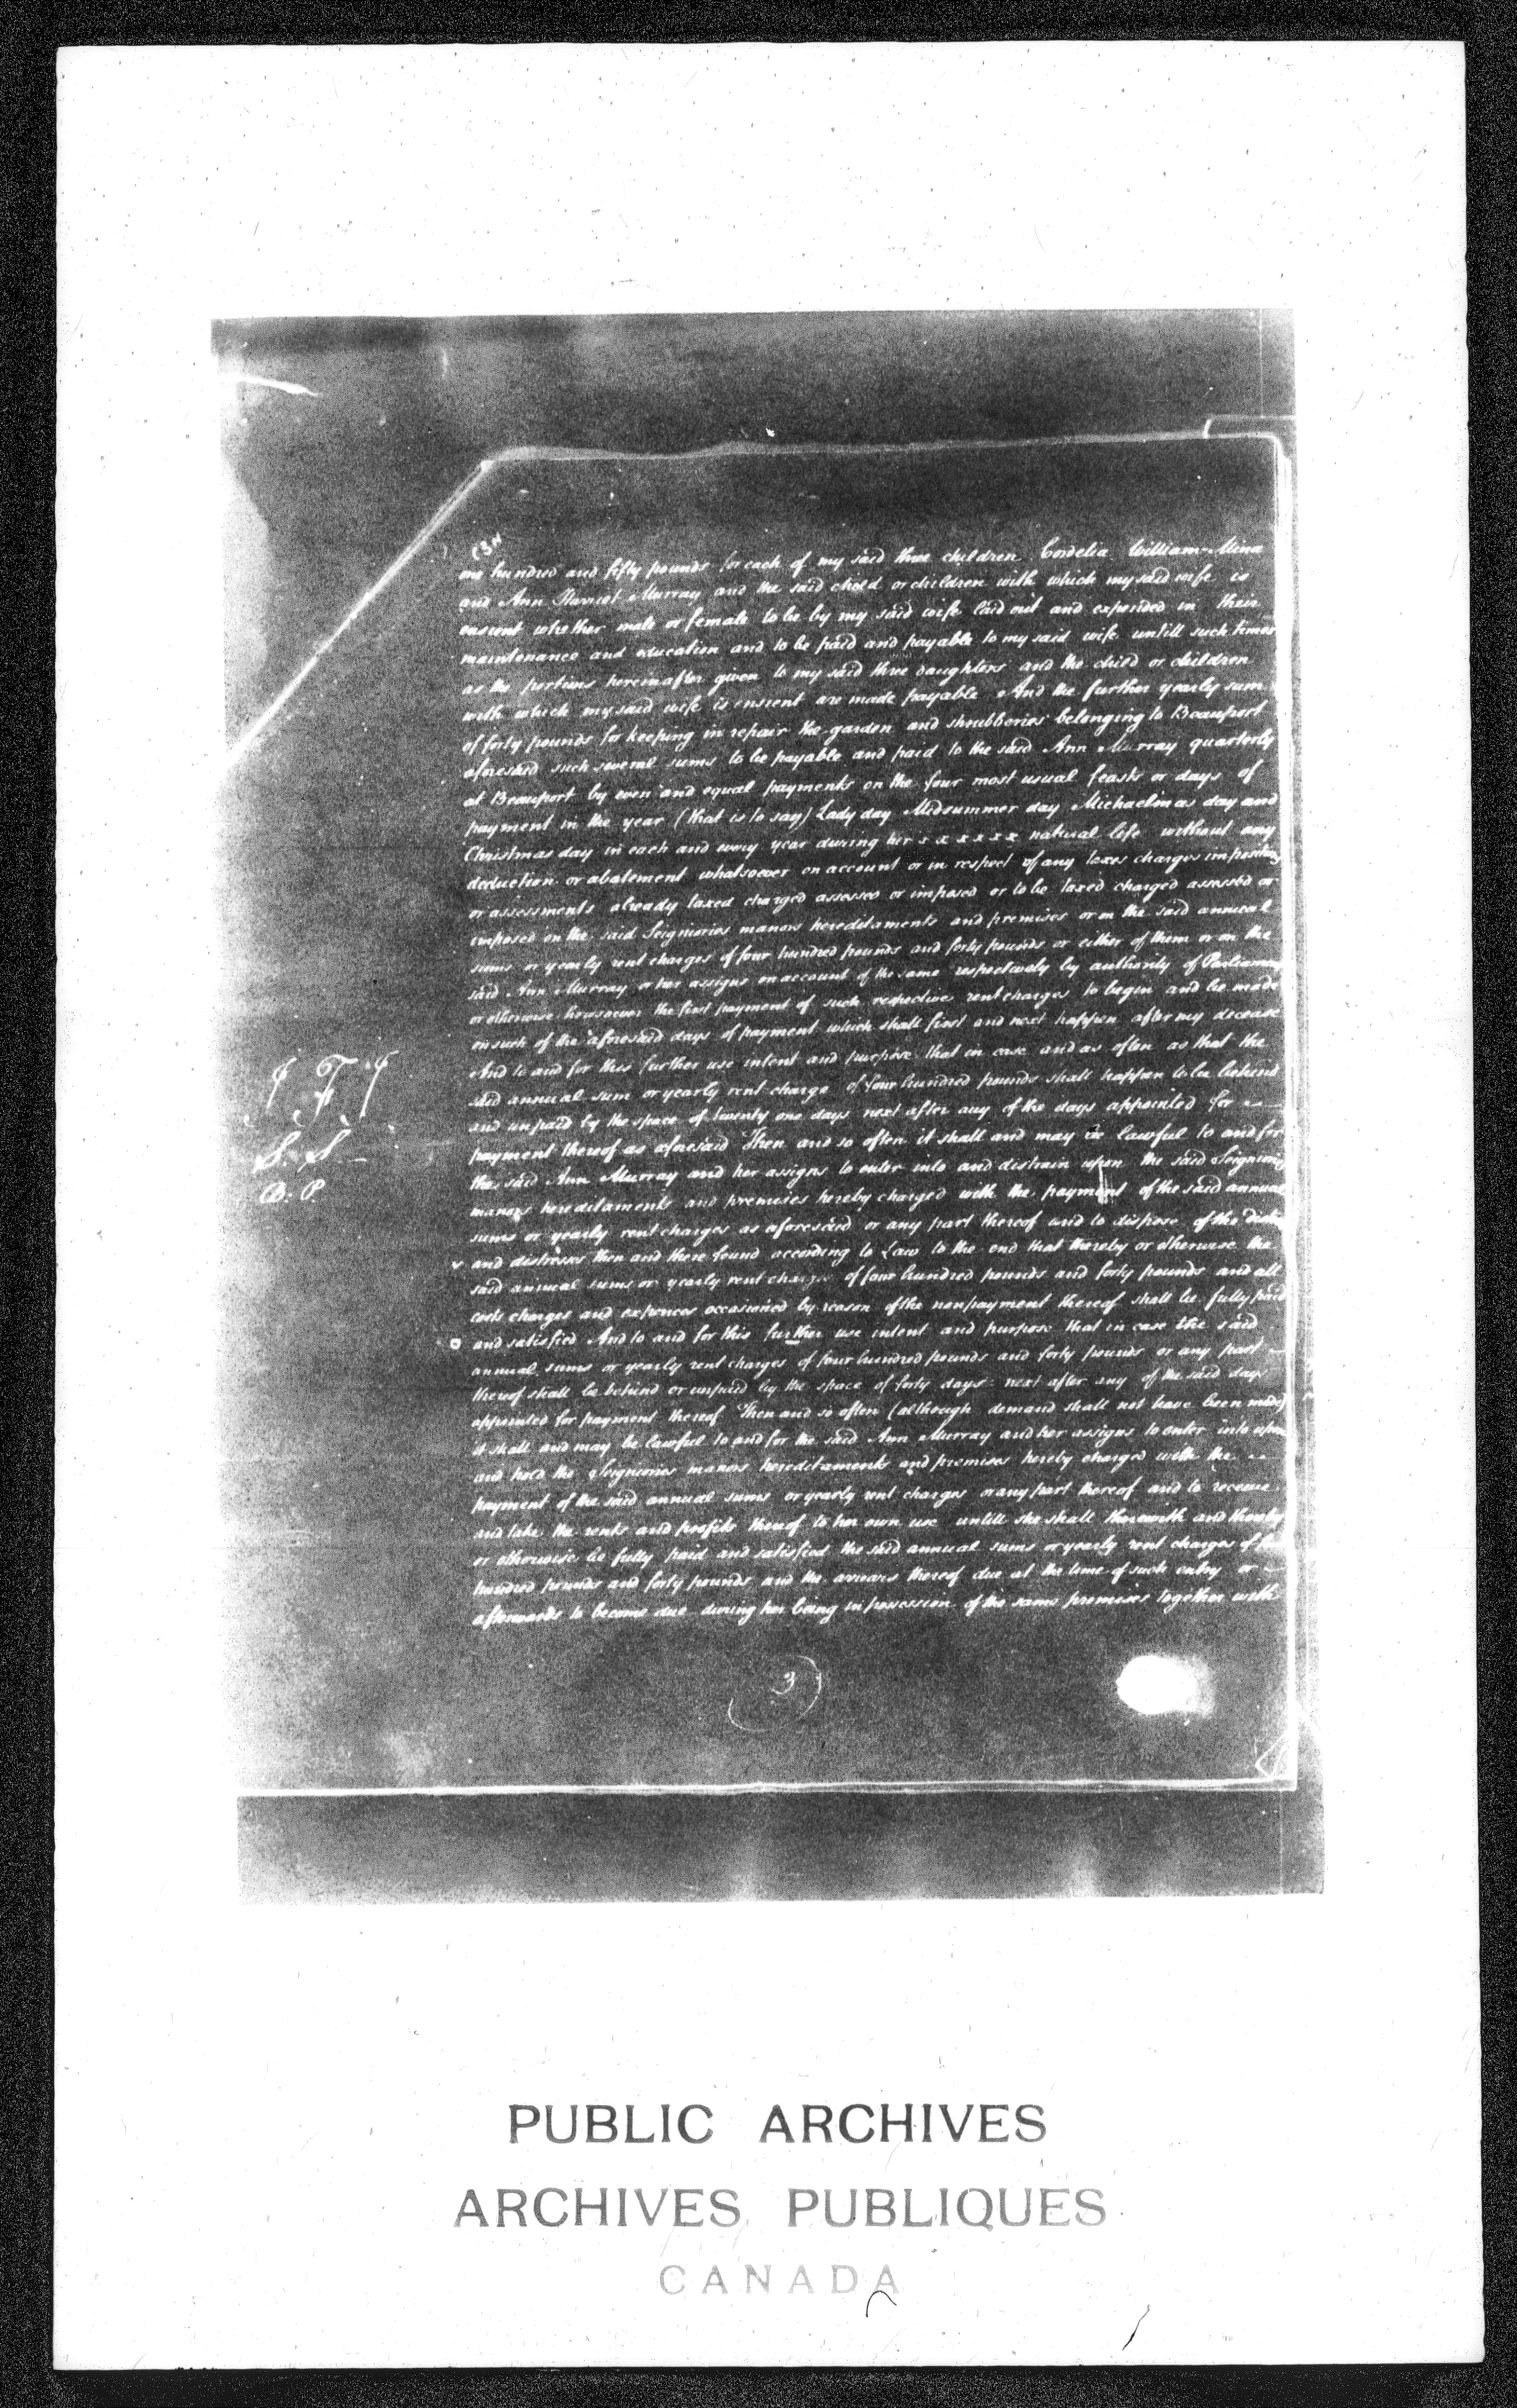 one hundred and fifty pounds for each of my said three children Cordelia William-Mina
and Ann Harriot Murray and the said child or children with which my said wife is
ensient whether male or female to be by my said wife laid out and expended in their
maintenance and education and to be paid and payable to my said wife untill such times
as the portions hereinafter given to my said three daughters and the child or children
with which my said wife is ensient are made payable And the further yearly sum
of forty pounds for keeping in repair the garden and shrubberies belonging to Beauport
aforesaid such several sums to be payable and paid to the said Ann Murray quarterly
at Beauport by even and equal payments on the four most usual feasts or days of
payment in the year (that is to say) Lady day Midsummer day Michaelmas day and
Christmas day in each and every year during her x x x x x x natural life without any
deduction or abatement whatsoever on account or in respect of any taxes charges impositions
or assessments already taxed charged assessed or imposed or to be taxed charged assessed or
imposed on the said Seigniories manors hereditaments and premises or on the said annual
sums or yearly rent charges of four hundred pounds and forty pounds or either of them or on the
said Ann Murray or her assigns on account of the same respectively by authority of Parliament
or otherwise howsoever the first payment of such respective rent charges to begin and be made
on such of the aforesaid days of payment which shall first and next happen after my decease
And to and for this further use intent and purpose that in case and as often as that the
said annual sum or yearly rent charge of four hundred pounds shall happen to be behind
and unpaid by the space of twenty one days next after any of the days appointed for
payment thereof as aforesaid Then and so often it shall and may be lawful to and for
the said Ann Murray and her assigns to enter into and distrain upon the said Seigniories
manors hereditaments and premises hereby charged with the payment of the said annual
sums or yearly rent charges as aforesaid or any part thereof and to dispose of the
and distresses then and there found according to Law to the end that thereby or otherwise the
said annual sums or yearly rent charges of four hundred pounds and forty pounds and all
costs charges and expences occasioned by reason of the nonpayment thereof shall be fully paid
and satisfied And to and for this further use intent and purpose that in case the said
annual sums or yearly rent charges of four hundred pounds and forty pounds or any part
thereof shall be behind or unpaid by the space of forty days next after any of the said days
appointed for payment thereof Then and so often (although demand shall not have been made)
it shall and may be lawful to and for the said Ann Murray and her assigns to enter into upon
and hold the Seigniories manors hereditaments and premises hereby charged with the
payment of the said annual sums or yearly rent charges or any part thereof and to receive
and take the rents and profits thereof to her own use untill she shall therewith and thereby
or otherwise be fully paid and satisfied the said annual sums or yearly rent charges of four
hundred pounds and forty pounds and the arrears thereof due at the time of such entry or
afterwards to become due during her being in possession of the same premises together with
S. S
B. P
3
PUBLIC ARCHIVES
ARCHIVES PUBLIQUES
CANADA